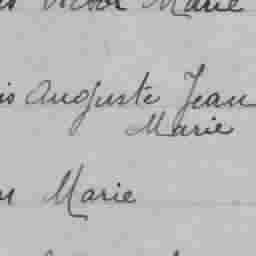 Victor Marie
Auguste Jean
Marie
Marie